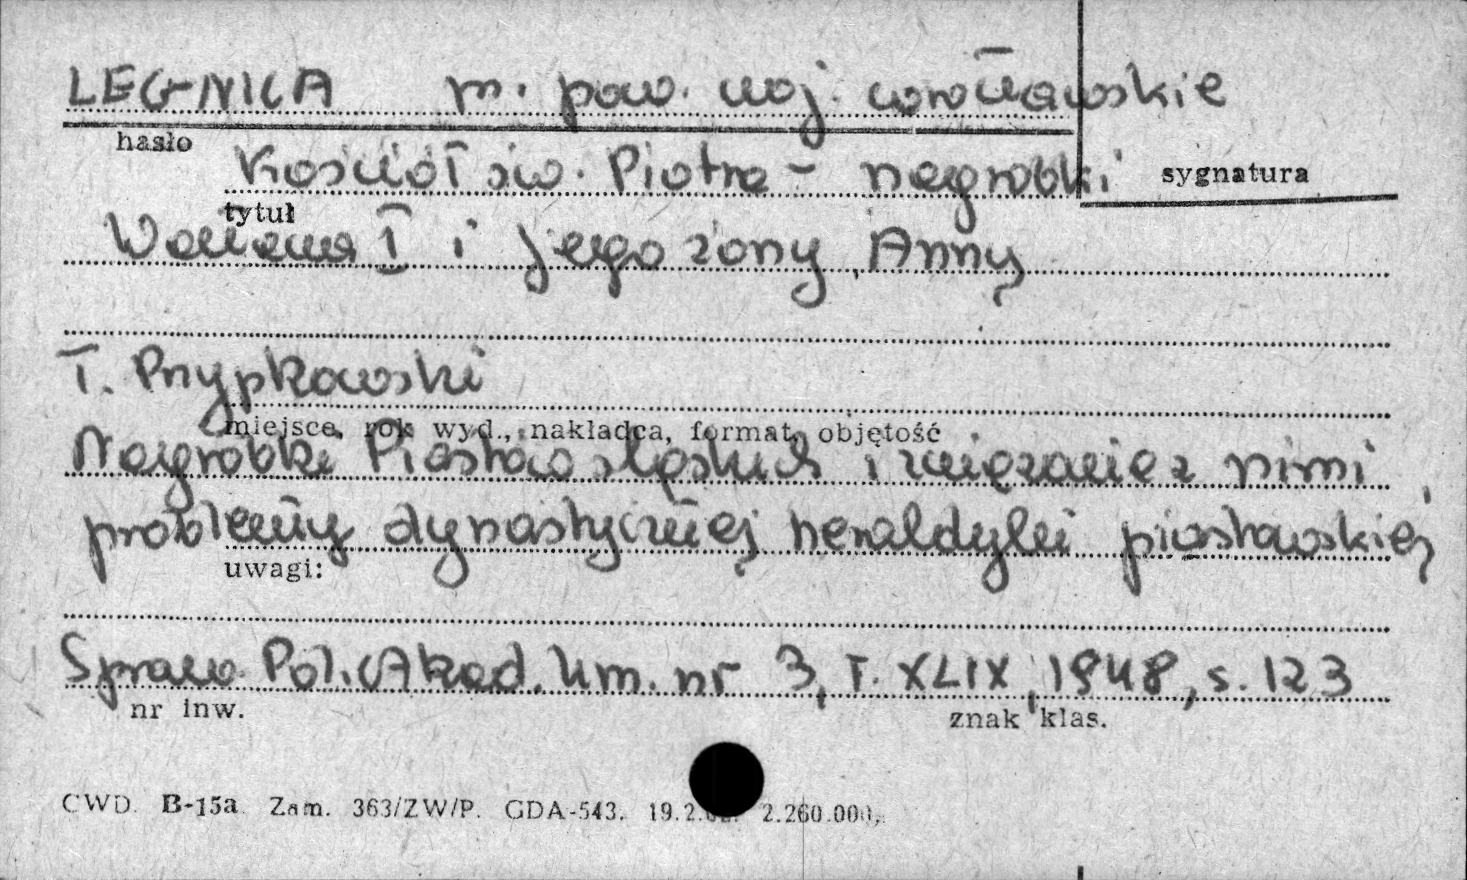 LEGNICA m. pow. woj. wrocławskie
hasło
Kościół św. Piotra - nagrobki
sygnatura
tytuł
Wacława I i jego żony Anny
T. Przypkowski
miejsce, rok wyd., nakładca, format, objętość
Nagrobki Piastów śląskich i związanie z nimi
problemy dynastycznej heraldyki piastowskiej
uwagi:
Spraw. Pol. Akad. Um. nr 3, T. XLIX, 1948, s. 123
nr inw.
znak klas.
CWD. B-15a Zam. 363/ZW/P. GDA-543. 2.260.000,